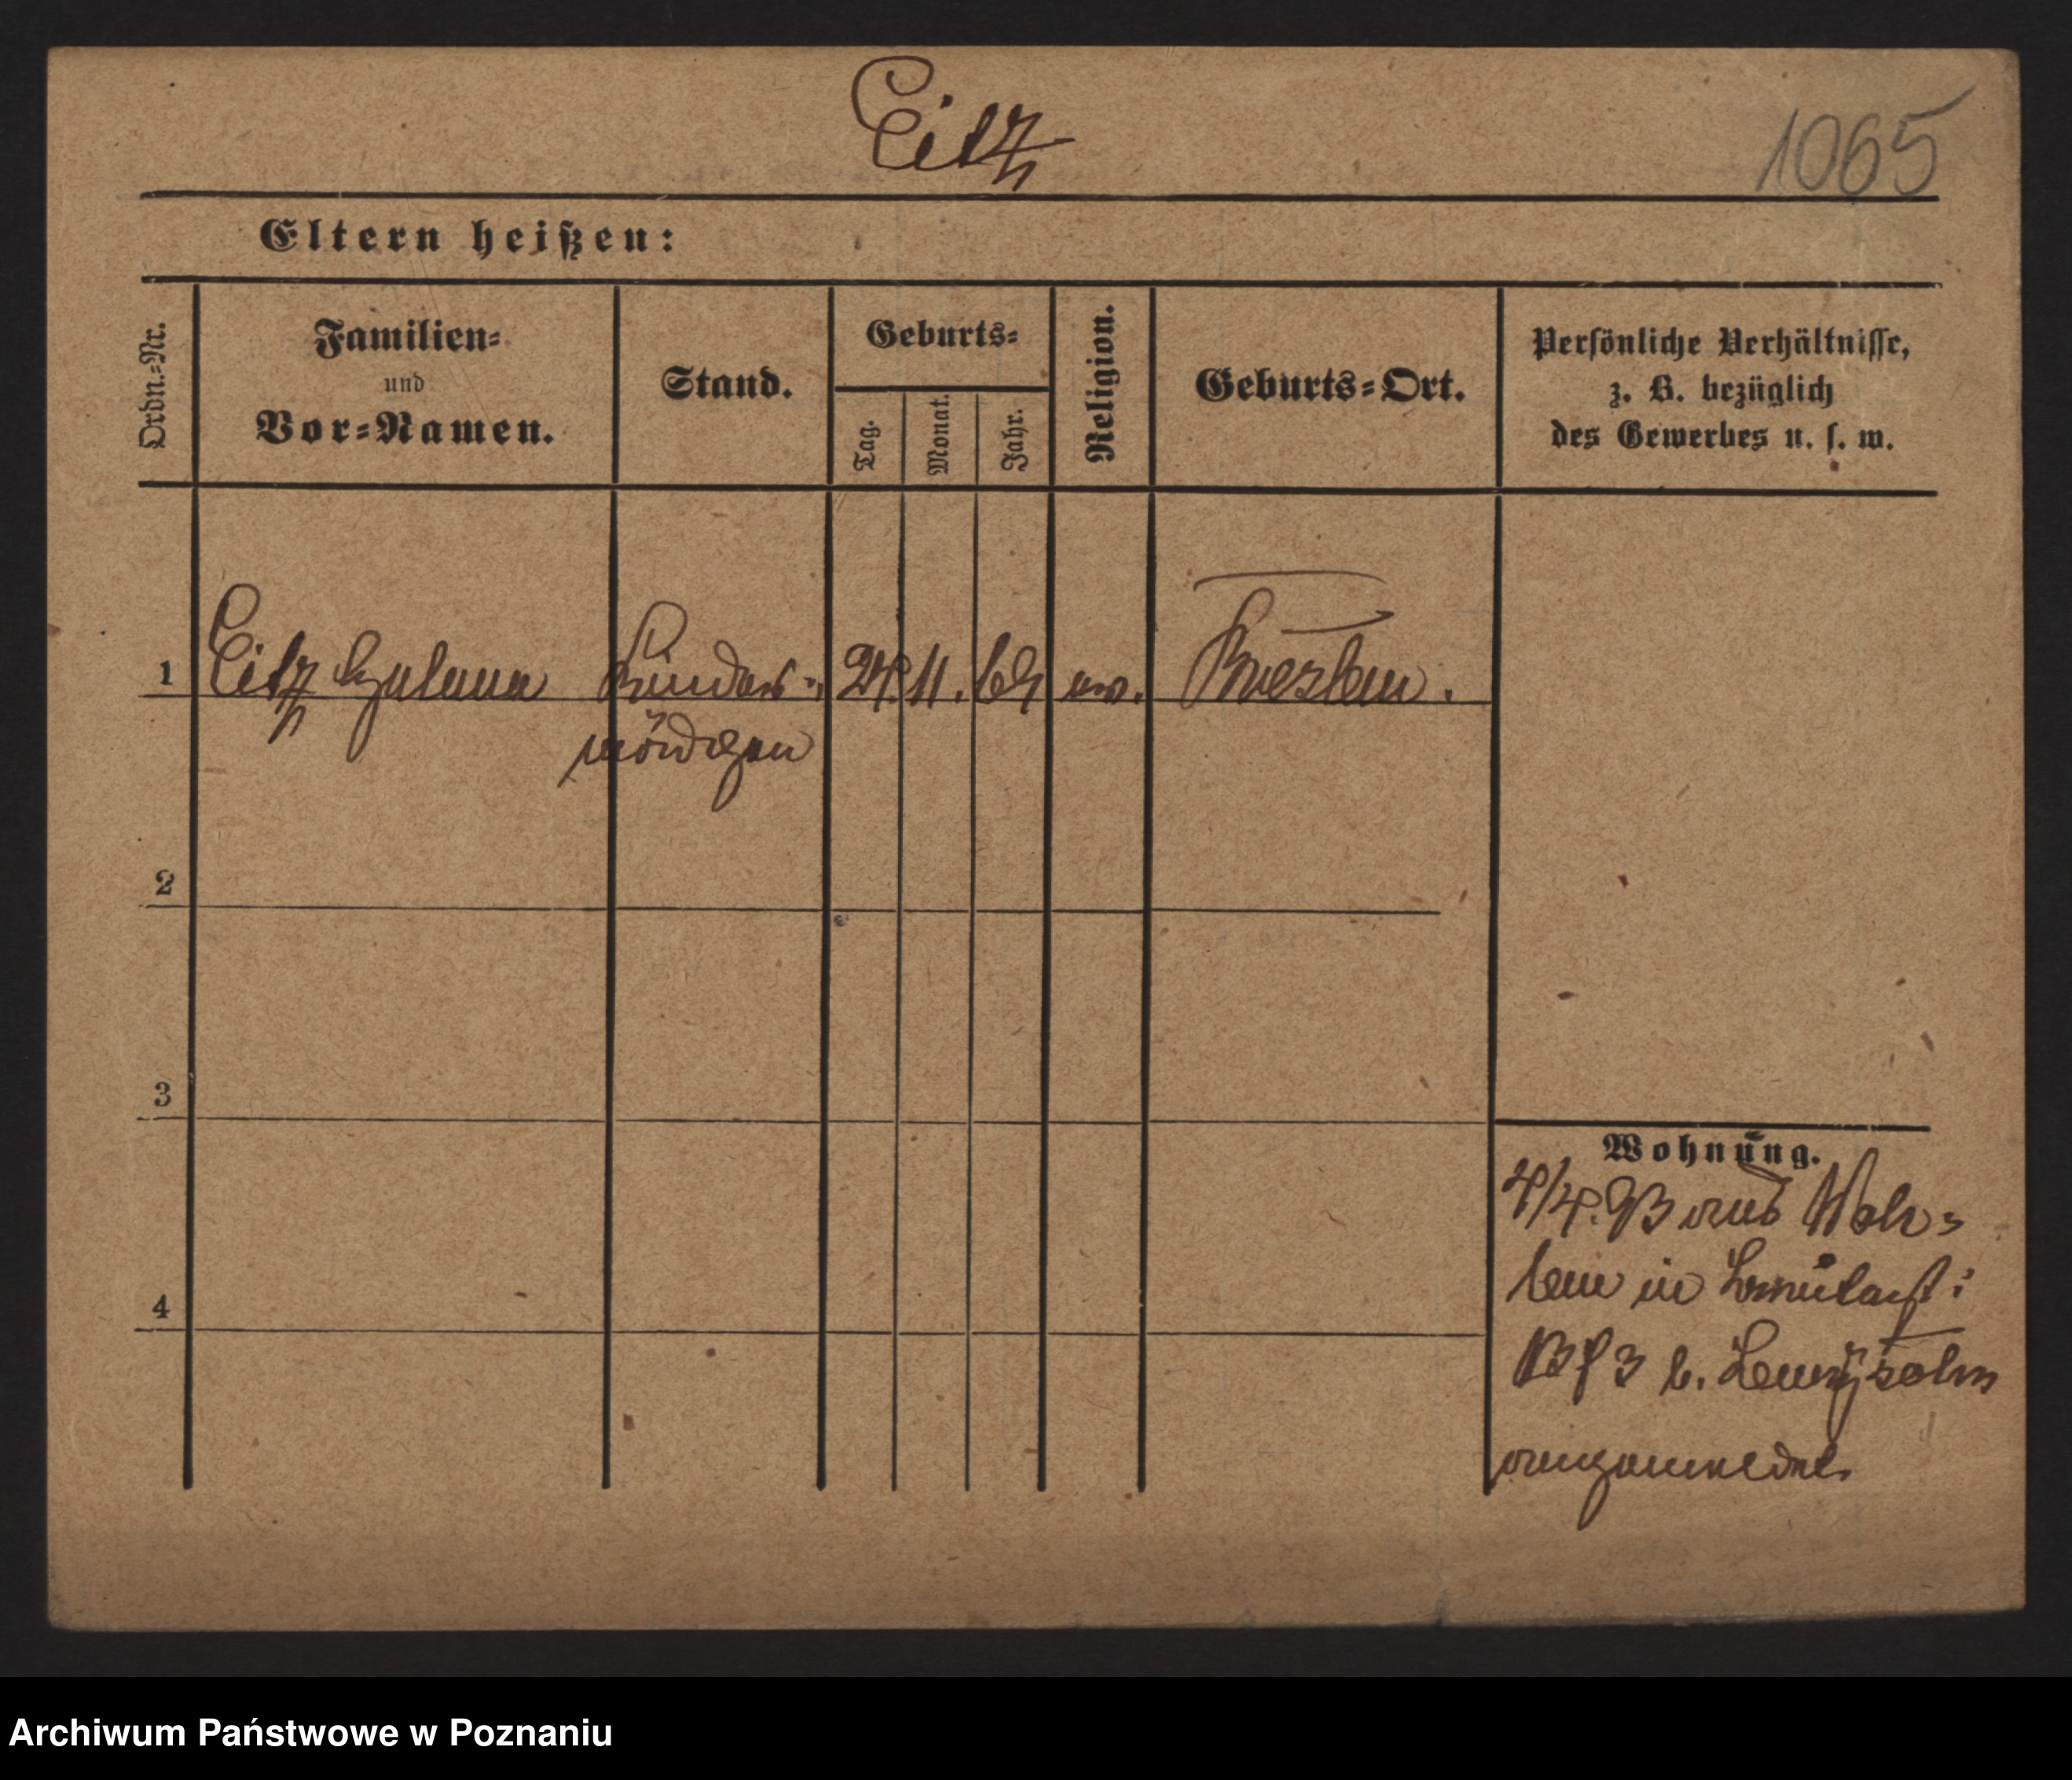 Eitz
1065
Eltern heißen:
Ordn.-Nr.
Familien-
und
Vor-Namen.
Stand.
Geburts-
Tag.
Monat.
Jahr.
Religion.
Geburts-Ort.
Persönliche Verhältnisse,
z. B. bezüglich
des Gewerbes u. s. w.
1
Eitz Helene
Kinder-
gärtnerin
24. 11. 64
ev.
Breslau.
2
3
4
Wohnung.
4/4. 93 aus Woh-
lau in
3 b. Lewysohn
angemeldet.
Archiwum Państwowe w Poznaniu